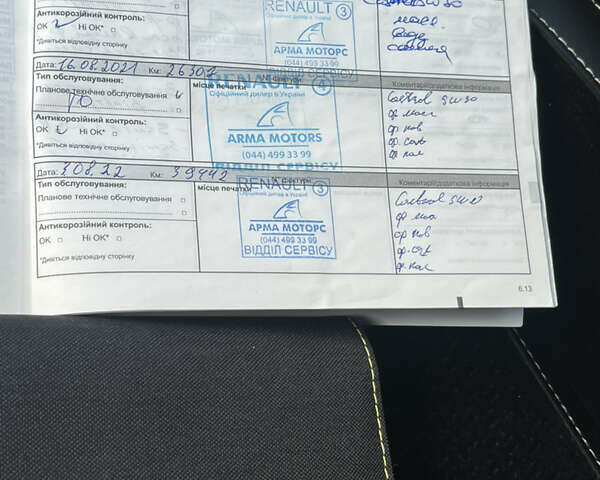 RENAULT 3
Офіційний дилер в Україні
Антикорозійний контроль:
ОК Ні ОК*
*Дивіться відповідну сторінку
АРМА МОТОРС
(044) 499 33 99
Дата: 16.08.2021 Км: 26307
Тип обслуговування:
місце печатки
Коментарі/додаткова інформація
Планове технічне обслуговування
ТО
RENAULT 4
Офіційний дилер в Україні
ARMA MOTORS
(044) 499 33 99
ВІДДІЛ СЕРВІСУ
Castrol 5W30
ф. масл
ф. пов
ф. сал
ф. пал
Антикорозійний контроль:
ОК Ні ОК*
*Дивіться відповідну сторінку
Дата: 3.08.22 Км: 39442
Тип обслуговування:
місце печатки
Коментарі/додаткова інформація
Планове технічне обслуговування
RENAULT 3
Офіційний дилер в Україні
АРМА МОТОРС
(044) 499 33 99
ВІДДІЛ СЕРВІСУ
Castrol
ф. пов
ф. пал
Антикорозійний контроль:
ОК Ні ОК*
*Дивіться відповідну сторінку
6.13